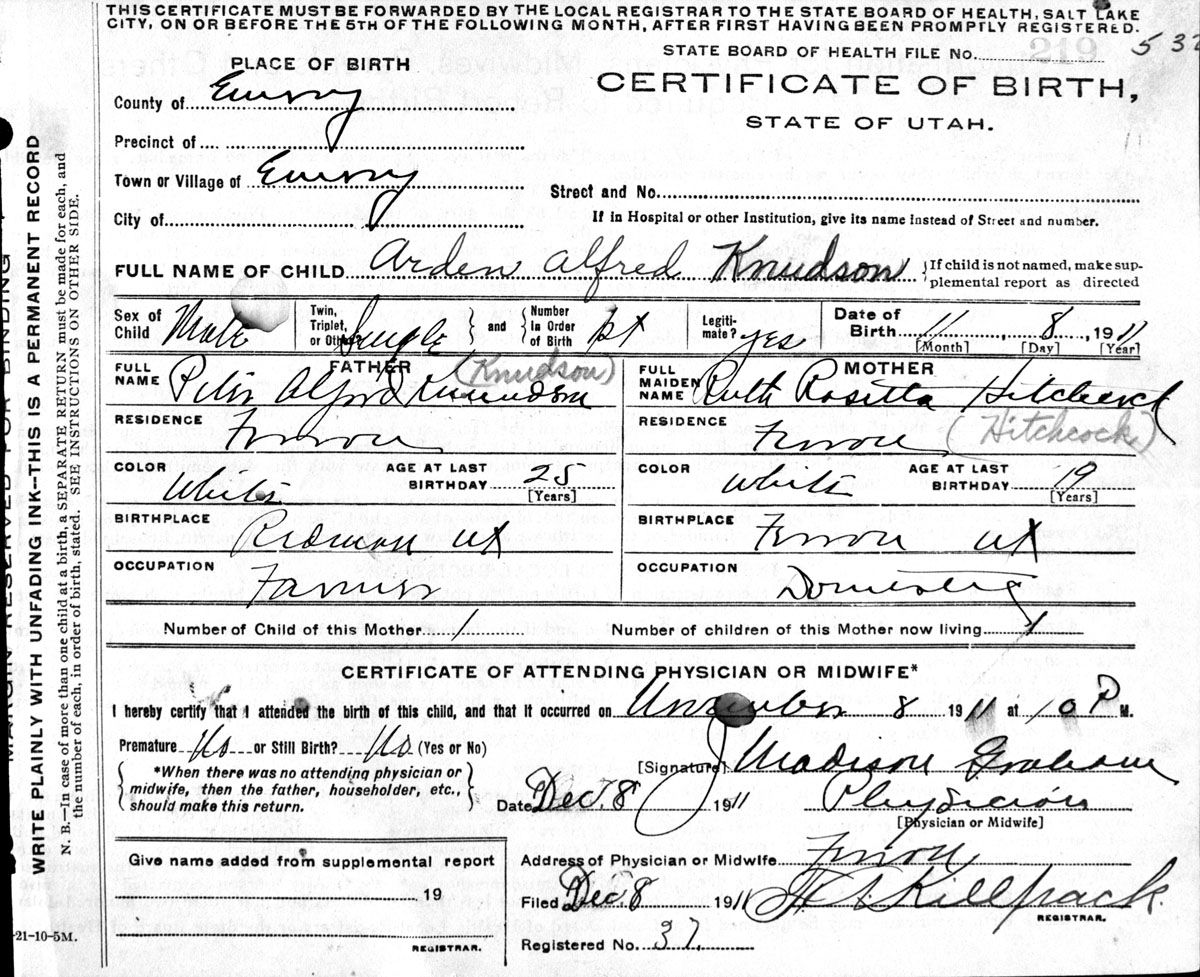 THIS CERTIFICATE MUST BE FORWARDED BY THE LOCAL REGISTRAR TO THE STATE BOARD OF HEALTH, SALT LAKE
CITY, ON OR BEFORE THE 5TH OF THE FOLLOWING MONTH, AFTER FIRST HAVING BEEN PROMPTLY REGISTERED.
STATE BOARD OF HEALTH FILE No. 219 532
PLACE OF BIRTH
CERTIFICATE OF BIRTH,
STATE OF UTAH.
County of Emery
Precinct of
Town or Village of Emery
Street and No.
City of
If in Hospital or other Institution, give its name instead of Street and number.
FULL NAME OF CHILD Arden Alfred Knudson
{If child is not named, make sup-
plemental report as directed
Sex of Child Male
Twin, Triplet, or Other? Single
and
Number in Order of Birth 1st
Legiti-mate? yes
Date of Birth 11 8, 1911
[Month] [Day] [Year]
FATHER
MOTHER
FULL NAME Peter Alfred Knundson (Knudson)
FULL MAIDEN NAME Ruth Rosetta Hitchcock
RESIDENCE Ferron
RESIDENCE Ferron (Hitchcock)
COLOR White
AGE AT LAST BIRTHDAY 25
[Years]
COLOR White
AGE AT LAST BIRTHDAY 19
[Years]
BIRTHPLACE Redmon Ut
BIRTHPLACE Ferron Ut
OCCUPATION Farmer
OCCUPATION Domestic
Number of Child of this Mother 1
Number of children of this Mother now living 1
CERTIFICATE OF ATTENDING PHYSICIAN OR MIDWIFE*
I hereby certify that I attended the birth of this child, and that it occurred on November 8 1911 at 10 P M.
Premature No or Still Birth? No (Yes or No)
{*When there was no attending physician or
midwife, then the father, householder, etc.,
should make this return.}
[Signature] J Madison Graham
Date Dec. 8 1911 Physician
[Physician or Midwife]
Give name added from supplemental report
19
REGISTRAR.
Address of Physician or Midwife Ferron
Filed Dec. 8 1911 Killpack
REGISTRAR.
Registered No. 37.
21-10-5M.
MARGIN RESERVED FOR BINDING
WRITE PLAINLY WITH UNFADING INK—THIS IS A PERMANENT RECORD
N. B.—In case of more than one child at a birth, a SEPARATE RETURN must be made for each, and
the number of each, in order of birth, stated. SEE INSTRUCTIONS ON OTHER SIDE.